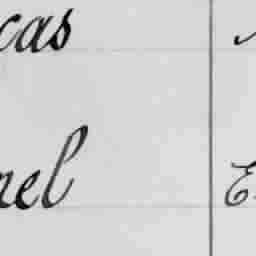 cas
nel E